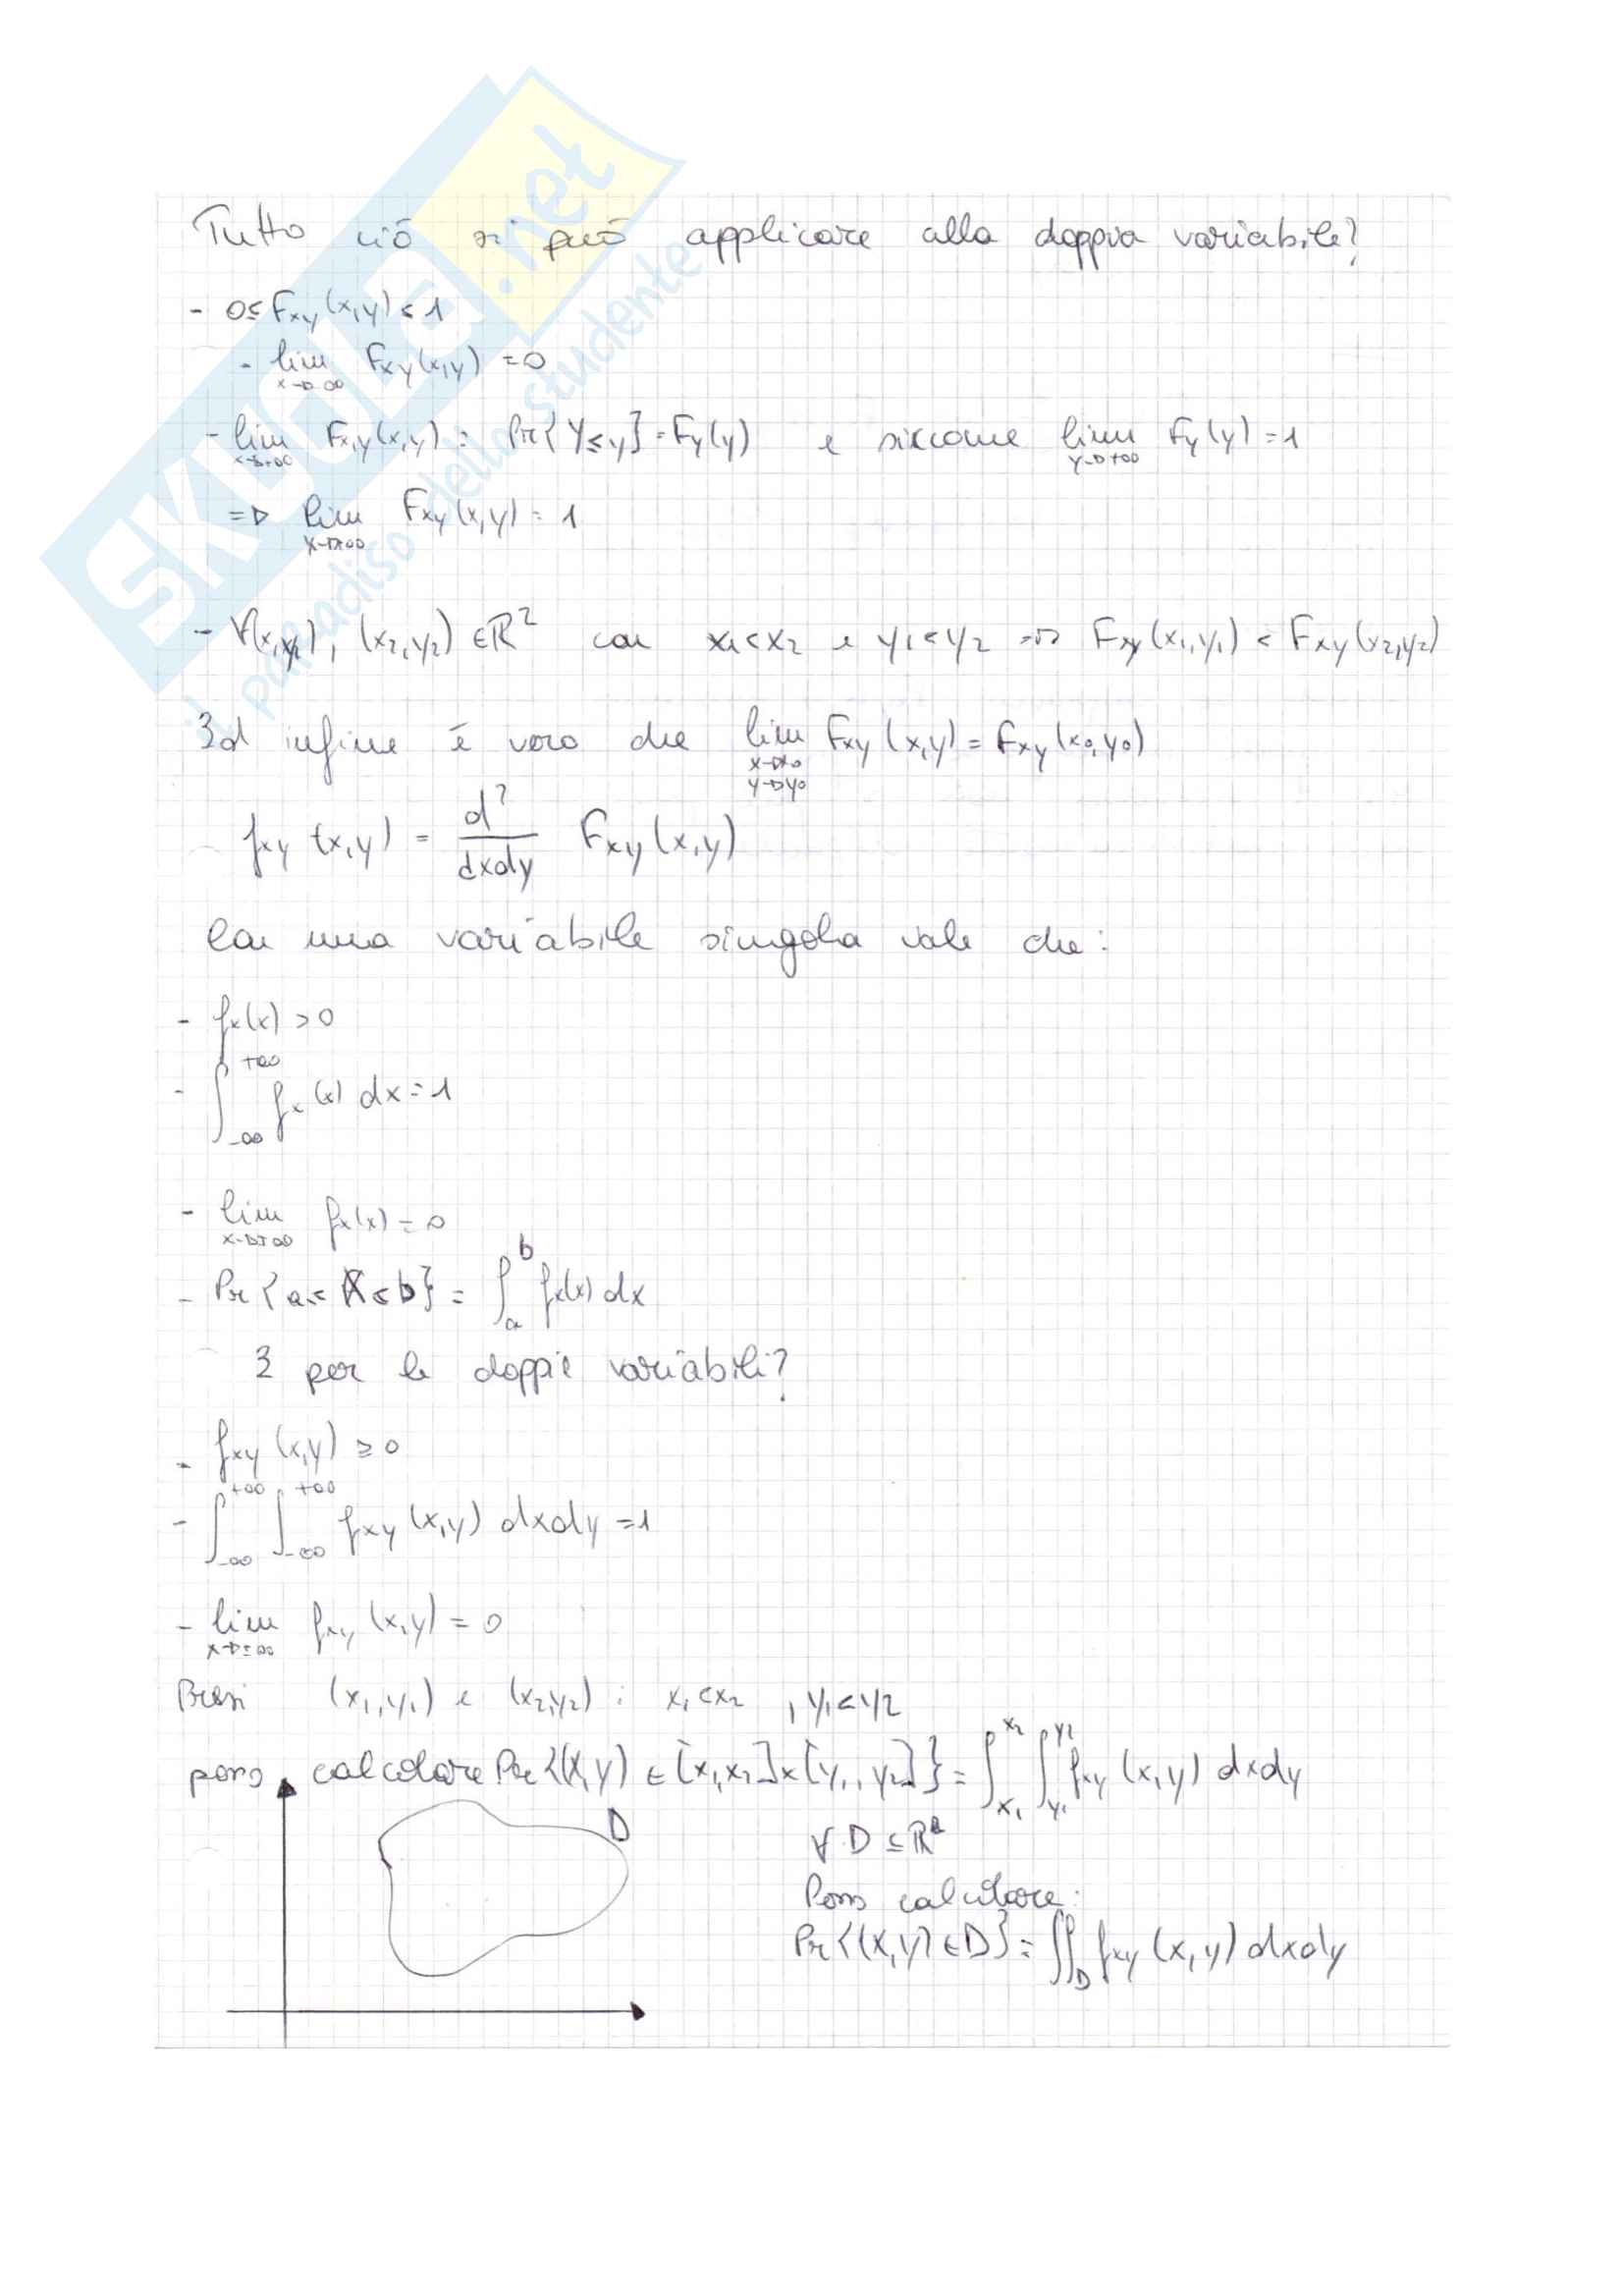 Tutto ciò si può applicare alla doppia variabile?
- 0≤Fxy(x,y)≤1
- lim x→-∞ Fxy(x,y) =0
- lim x→+∞ Fx,y(x,y) = Pr{Y≤y}=Fy(y) e siccome lim y→+∞ Fy(y)=1
=> lim x→+∞ Fxy(x,y)=1
- ∀(x1,y1), (x2,y2) ∈ℝ² con x1<x2 e y1<y2 => Fxy(x1,y1) < Fxy(x2,y2)
Ed infine è vero che lim x→x0 y→y0 Fxy(x,y)=Fxy(x0,y0)
fxy(x,y) = d²/dxdy Fxy(x,y)
Con una variabile singola vale che:
- fx(x)>0
- ∫-∞+∞ fx(x) dx=1
- lim x→±∞ fx(x)=0
- Pr{a≤X≤b}= ∫ab fx(x) dx
E per le doppie variabili?
- fxy(x,y) ≥0
- ∫-∞+∞ ∫-∞+∞ fxy(x,y) dxdy =1
- lim x→±∞ fxy(x,y)=0
Presi (x1,y1) e (x2,y2) : x1<x2 , y1<y2
posso calcolare Pr{(X,Y) ∈[x1,x2]x[y1,y2]}= ∫x1x2 ∫y1y2 fxy(x,y) dxdy
D
∀ D ⊆ℝ²
Posso calcolare:
Pr{(X,Y)∈D}= ∬D fxy(x,y) dxdy
SKUOLA.net
il paradiso dello studente